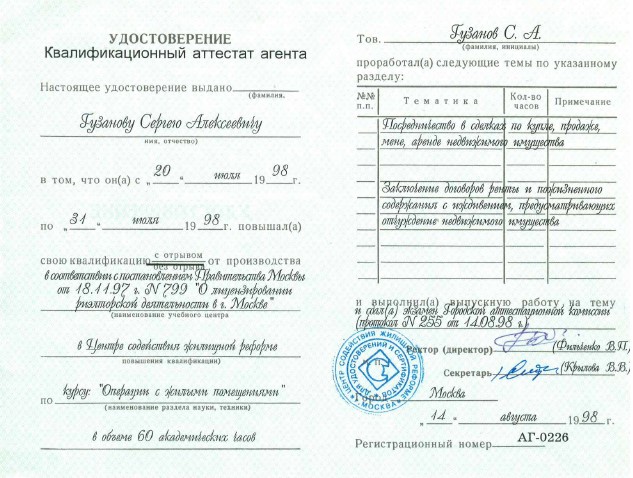 УДОСТОВЕРЕНИЕ
Квалификационный аттестат агента
Настоящее удостоверение выдано
(фамилия,
Гузанову Сергею Алексеевичу
имя, отчество)
в том, что он(а) с „ 20 “ июля 1998 г.
по „31“ июля 1998 г. повышал(а)
свою квалификацию с отрывом
без отрыва от производства
в соответствии с постановлением Правительства Москвы
от 18.11.97 г. N 799 "О лицензировании
риэлторской деятельности в г. Москве"
(наименование учебного центра
в Центре содействия жилищной реформе
повышения квалификации)
по курсу: "Операции с жилыми помещениями"
(наименование раздела науки, техники)
в объеме 60 академических часов
Тов. Гузанов С. А.
(фамилия, инициалы)
проработал(а) следующие темы по указанному
разделу:
№№ п.п. Тематика Кол-во часов Примечание
Посредничество в сделках по купле, продаже,
мене, аренде недвижимого имущества
Заключение договоров ренты и пожизненного
содержания с иждивением, предусматривающих
отчуждение недвижимого имущества
и выполнил(а) выпускную работу на тему
и сдал(а) экзамен Городской аттестационной комиссии
(протокол N 255 от 14.08.98 г.)
Ректор (директор) (Фильченко В.П.)
Секретарь (Крилова В.В.)
Город Москва
„ 14 “ августа 1998 г.
Регистрационный номер АГ-0226
ЦЕНТР СОДЕЙСТВИЯ ЖИЛИЩНОЙ РЕФОРМЕ
ДЛЯ УДОСТОВЕРЕНИЙ И СЕРТИФИКАТОВ
МОСКВА